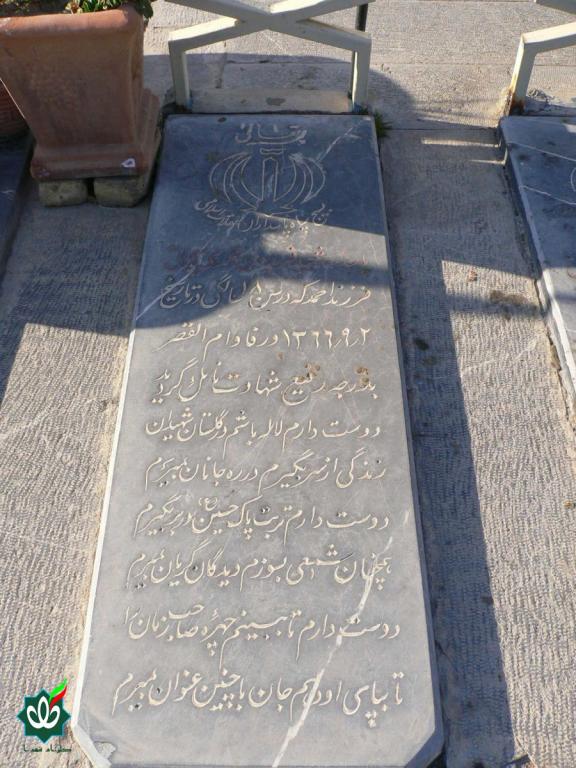 بسمه تعالی
فرزند احمد که در سن ۱۸ سالگی در تاریخ
۱۳۶۶٫۹٫۲ در فاو ام القصر
بدرجه رفیع شهادت نائل گردید
دوست دارم لاله باشم در گلستان شهیدان
زندگی از سر بگیرم در ره جانان بمیرم
دوست دارم تربت پاک حسین (ع) در بر بگیرم
همچنان شمعی بسوزم دیدگان گریان بمیرم
دوست دارم تا ببینم چهره صاحب زمان را
تا بپای او دهم جان با چنین عنوان بمیرم